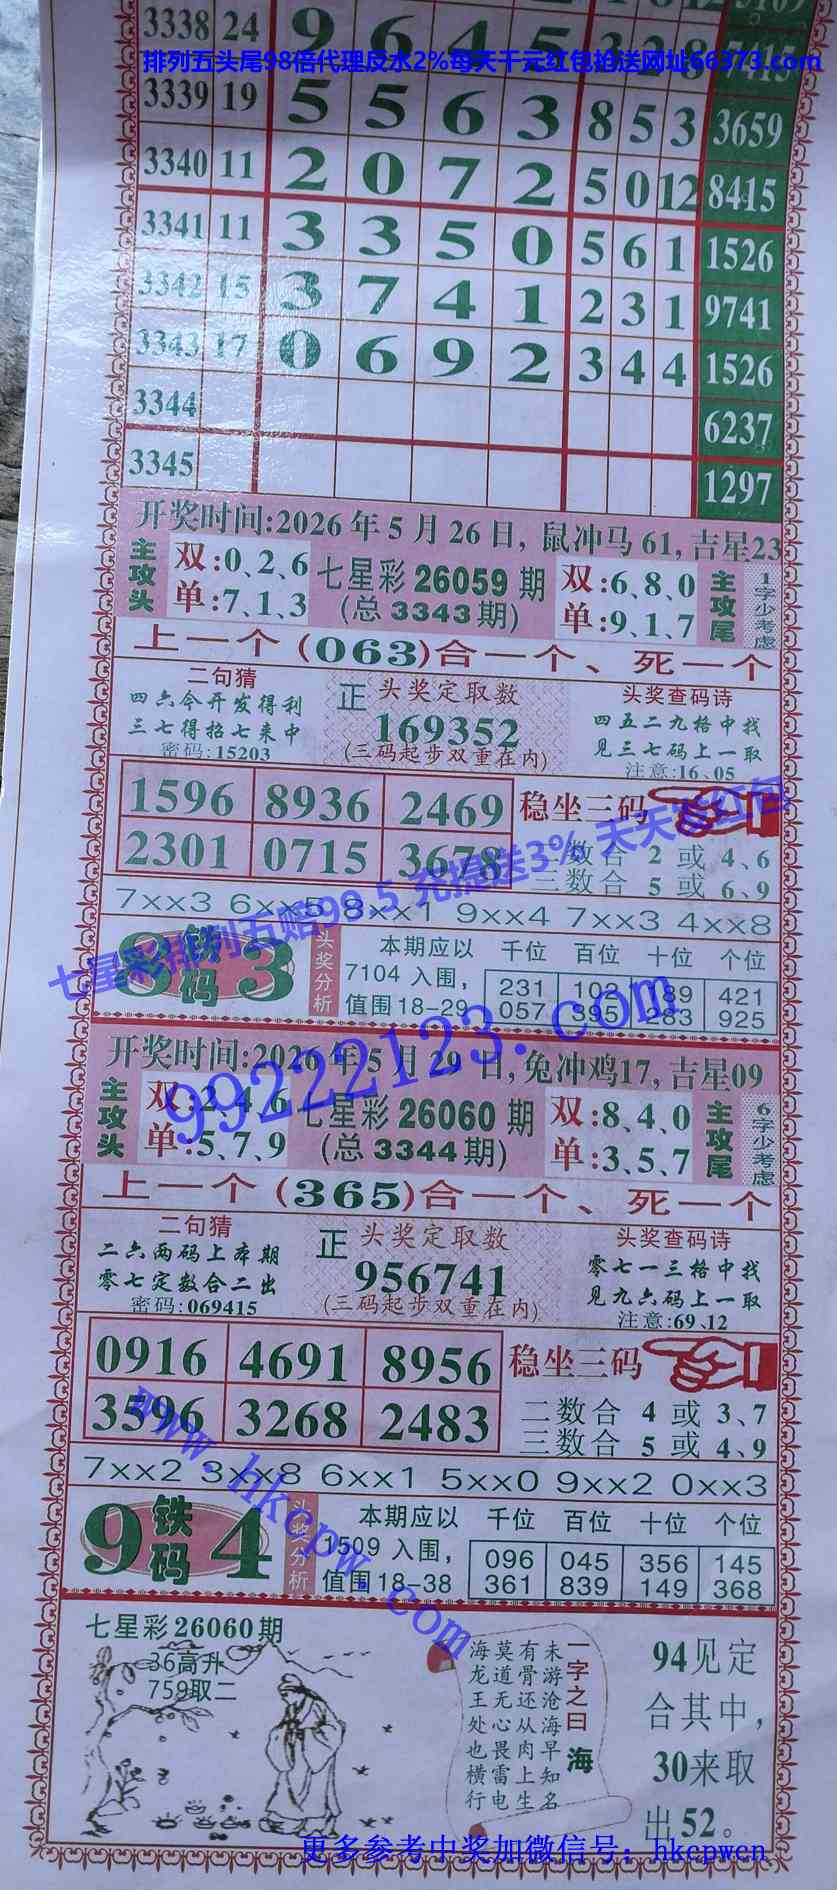 3338 24 9 6 4 5 3 2 8 7415
排列五头尾98倍代理反水2%每天千元红包抢送网址66373.com
3339 19 5 5 6 3 8 5 3 3659
3340 11 2 0 7 2 5 0 12 8415
3341 11 3 3 5 0 5 6 1 1526
3342 15 3 7 4 1 2 3 1 9741
3343 17 0 6 9 2 3 4 4 1526
3344 6237
3345 1297
开奖时间:2026年5月26日,鼠冲马61,吉星23
主攻头
双:0、2、6
单:7、1、3
七星彩26059期
(总3343期)
双:6、8、0
单:9、1、7
主攻尾
1字少考虑
上一个(063)合一个、死一个
二句猜
四六今开发得利
三七得招七来中
密码:15203
正 头奖定取数
169352
(三码起步双重在内)
头奖查码诗
四五二九格中找
见三七码上一取
注意:16、05
1596 8936 2469
2301 0715 3678
稳坐三码
二数合 2 或 4、6
三数合 5 或 6、9
7xx3 6xx5 8xx1 9xx4 7xx3 4xx8
七星彩排列五赔99.5 充提送3% 天天抢红包
8铁码3
头奖分析
本期应以 千位 百位 十位 个位
7104入围, 231 102 189 421
值围18-29 057 395 283 925
99222123.com
开奖时间:2026年5月29日,兔冲鸡17,吉星09
主攻头
双:2、4、6
单:5、7、9
七星彩26060期
(总3344期)
双:8、4、0
单:3、5、7
主攻尾
6字少考虑
上一个(365)合一个、死一个
二句猜
二六两码上本期
零七定数合二出
密码:069415
正 头奖定取数
956741
(三码起步双重在内)
头奖查码诗
零七一三格中找
见九六码上一取
注意:69、12
0916 4691 8956
3596 3268 2483
稳坐三码
二数合 4 或 3、7
三数合 5 或 4、9
7xx2 3xx8 6xx1 5xx0 9xx2 0xx3
www.hkcpw.com
9铁码4
头奖分析
本期应以 千位 百位 十位 个位
1509入围, 096 045 356 145
值围18-38 361 839 149 368
七星彩26060期
36高升
759取二
一字之曰 海
未游沧海早知名
有骨还从肉上生
莫道无心畏雷电
海龙王处也横行
94见定
合其中,
30来取
出52。
更多参考中奖加微信号:hkcpwcn